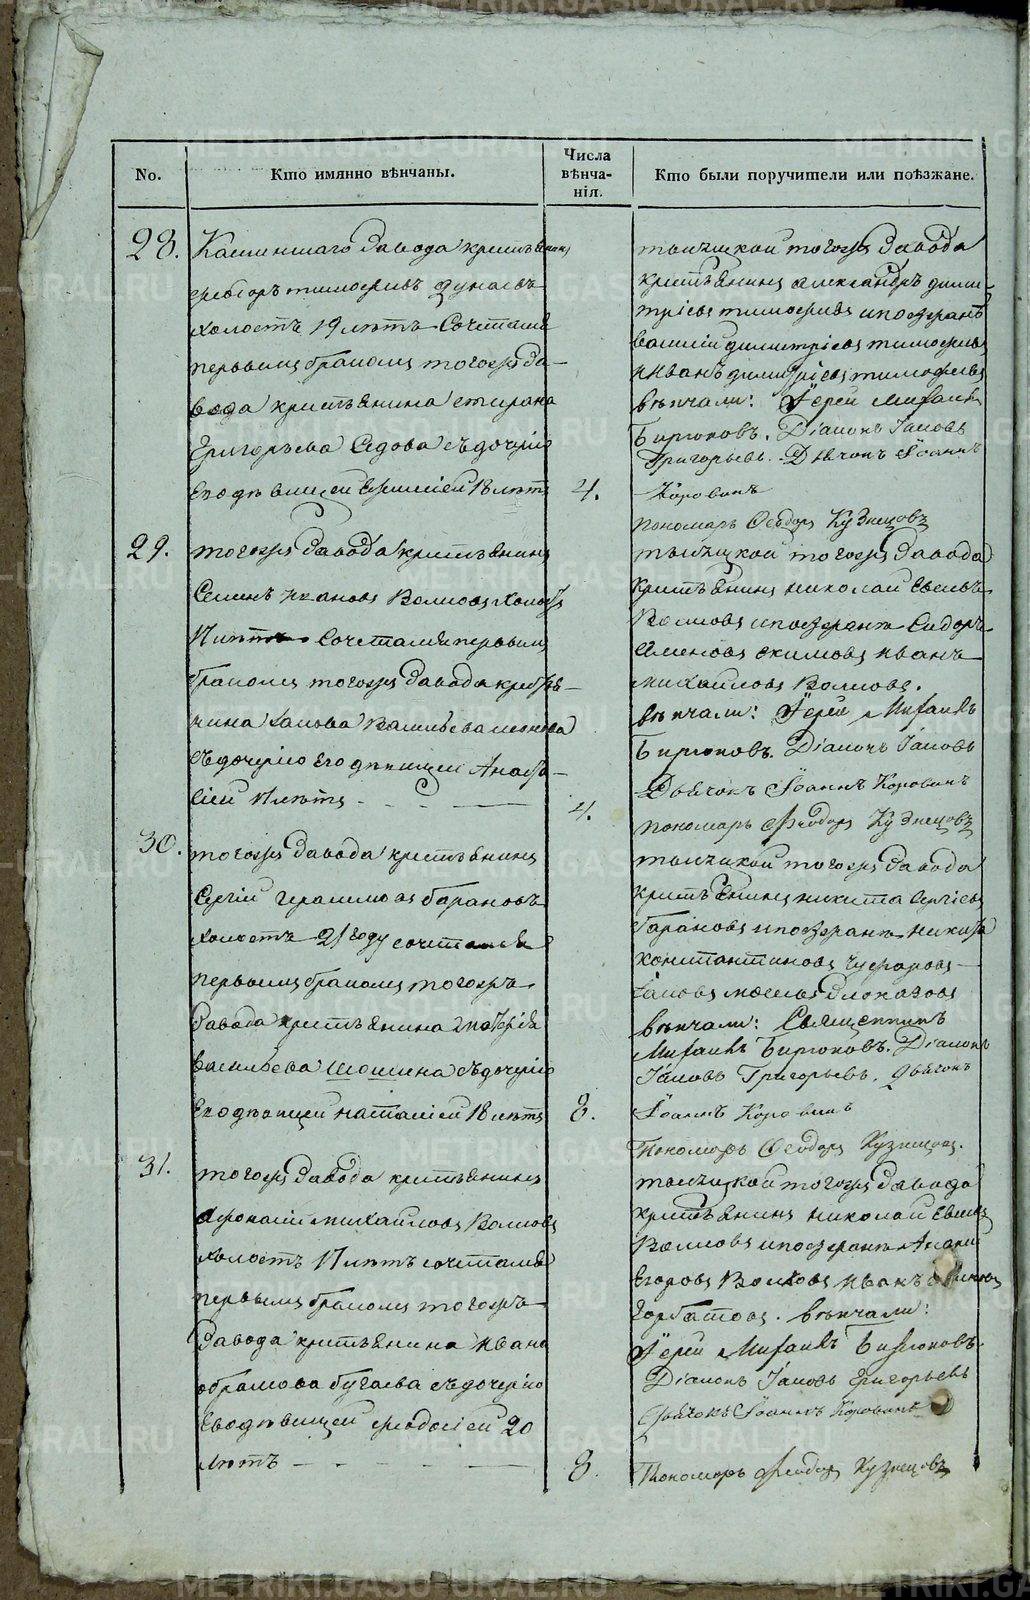 No.
Кто имянно вѣнчаны.
Числа
вѣнча-
нія.
Кто были поручители или поѣзжане.
28.
Каслинскаго Завода крестьянинъ
Ѳедоръ тимоѳеевъ Дунаевъ
холостъ 19 лѣтъ Сочетался
первымъ бракомъ тогожъ За-
вода крестьянина
Григорьева Седова съдочерью
Его дѣвицей 18 лѣтъ
4.
тысяцкой тогожъ Завода
крестьянинъ александръ дими-
тріевъ тимоѳеевъ ипоезжанъ
василей димитріевъ тимоѳеевъ
иванъ димитріевъ тимофеевъ
вѣнчали: Іерей Михаилъ
Бирюковъ. Діаконъ Іаковъ
Григорьевъ. Дьячокъ Іоаннъ
Коровинъ
пономарь Ѳеодоръ Кузнецовъ
29.
тогожъ Завода крестьянинъ
Семенъ ивановъ Волковъ холостъ
лѣтъ Сочетался первымъ
бракомъ тогожъ Завода крестья-
нина Васильева
съдочерью его дѣвицей Анаста-
сіей лѣтъ
4.
тысяцкой тогожъ Завода
крестьянинъ николай
Волковъ ипоезжанъ Сидоръ
Семеновъ екимовъ иванъ
михайловъ Волковъ.
вѣнчали: Іерей Михаилъ
Бирюковъ. Діаконъ Іаковъ
Дьячокъ Іоаннъ Коровинъ
пономарь Ѳеодоръ Кузнецовъ
30.
тогожъ Завода крестьянинъ
Сергій герасимовъ барановъ
холостъ 21 году сочетался
первымъ бракомъ тогожъ
Завода крестьянина
васильева шошина съдочерью
Его дѣвицей наталіей 18 лѣтъ
8.
тысяцкой тогожъ Завода
крестьянинъ никита Сергіевъ
барановъ ипоезжанъ никита
константиновъ
Іаковъ
вѣнчали: Священникъ
Михаилъ Бирюковъ. Діаконъ
Іаковъ Григорьевъ. Дьячокъ
Іоаннъ Коровинъ
Пономарь Ѳеодоръ Кузнецовъ.
31.
тогожъ Завода крестьянинъ
афонасій михайловъ Волковъ
холостъ лѣтъ сочетался
первымъ бракомъ тогожъ
Завода крестьянина ивана
абрамова бугаева съдочерью
Его дѣвицей ѳеодосіей 20
лѣтъ
8.
тысяцкой тогожъ Завода
крестьянинъ николай
Волковъ ипоезжанъ
Егоровъ Волковъ иванъ
горбатовъ. вѣнчали:
Іерей Михаилъ Бирюковъ.
Діаконъ Іаковъ Григорьевъ
Дьячокъ Іоаннъ Коровинъ
Пономарь Ѳеодоръ Кузнецовъ
METRIKI.GASO-URAL.RU